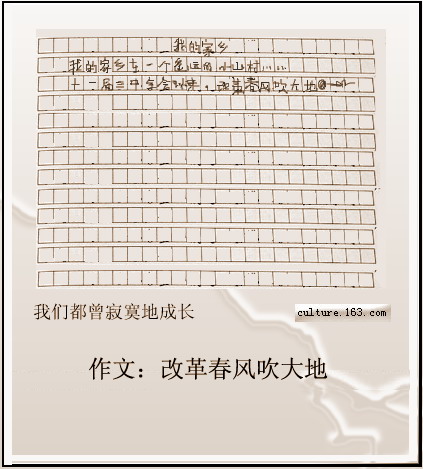 我的家乡
我的家乡在一个遥远的小山村……
十一届三中全会以来，改革春风吹大地
我们都曾寂寞地成长
culture.163.com
作文：改革春风吹大地